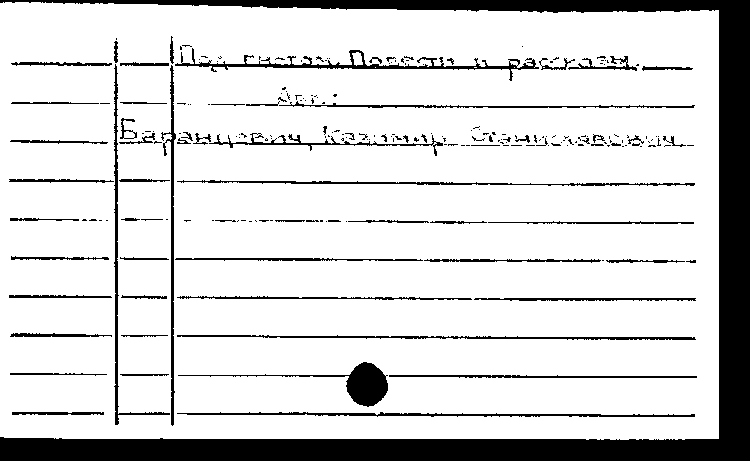 Под гнетом. Повести и рассказы.
Авт.:
Баранцевич, Казимир Станиславович.